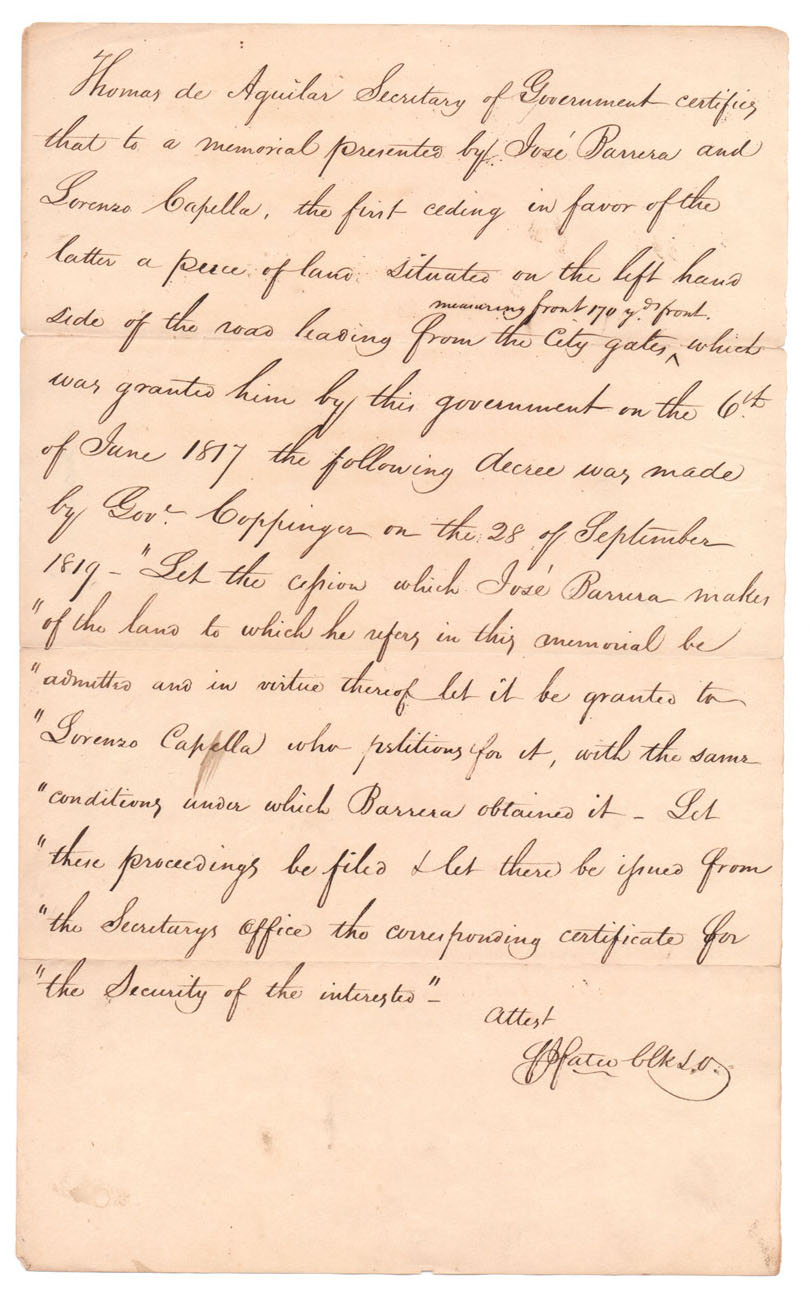 Thomas de Aguilar Secretary of Government certifies
that to a memorial presented by José Barrera and
Lorenzo Capella, the first ceding in favor of the
latter a peece of land situated on the left hand
measuring front 170 yds front.
side of the road leading from the City gates ‸ which
was granted him by this government on the 6th
of June 1817 the following decree was made
by Govr Coppinger on the 28 of September
1819 – "Let the cession which José Barrera makes
"of the land to which he refers in this memorial be
"admitted and in virtue thereof let it be granted to
"Lorenzo Capella who petitions for it, with the same
"conditions under which Barrera obtained it – Let
"these proceedings be filed & let there be issued from
"the Secretarys office the corresponding certificate for
"the Security of the interested" –
Attest
Clk